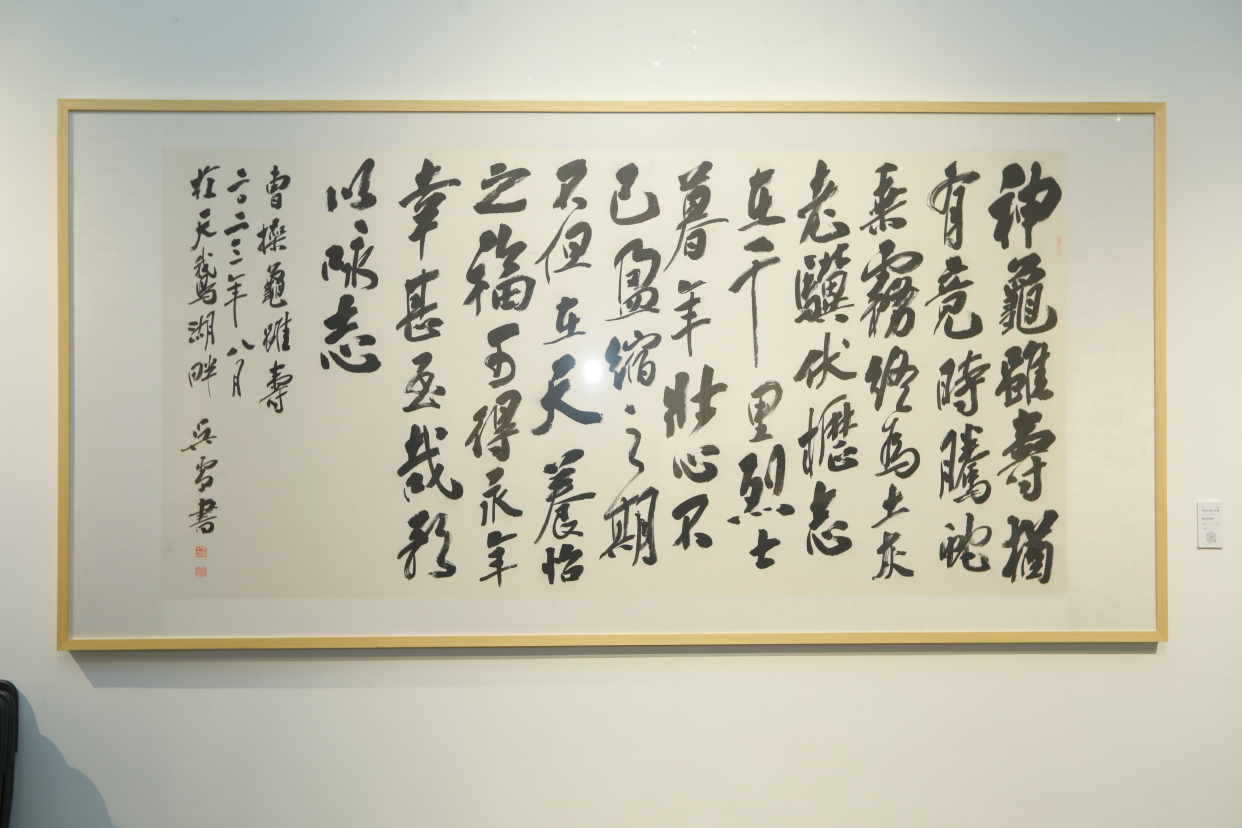 神龜雖壽猶
有竟時騰蛇
乘霧終為土灰
老驥伏櫪志
在千里烈士
暮年壯心不
已盈縮之期
不但在天養怡
之福可得永年
幸甚至哉歌
以咏志
曹操龜雖壽
二〇二三年八月
於天鵝湖畔 吳雪書